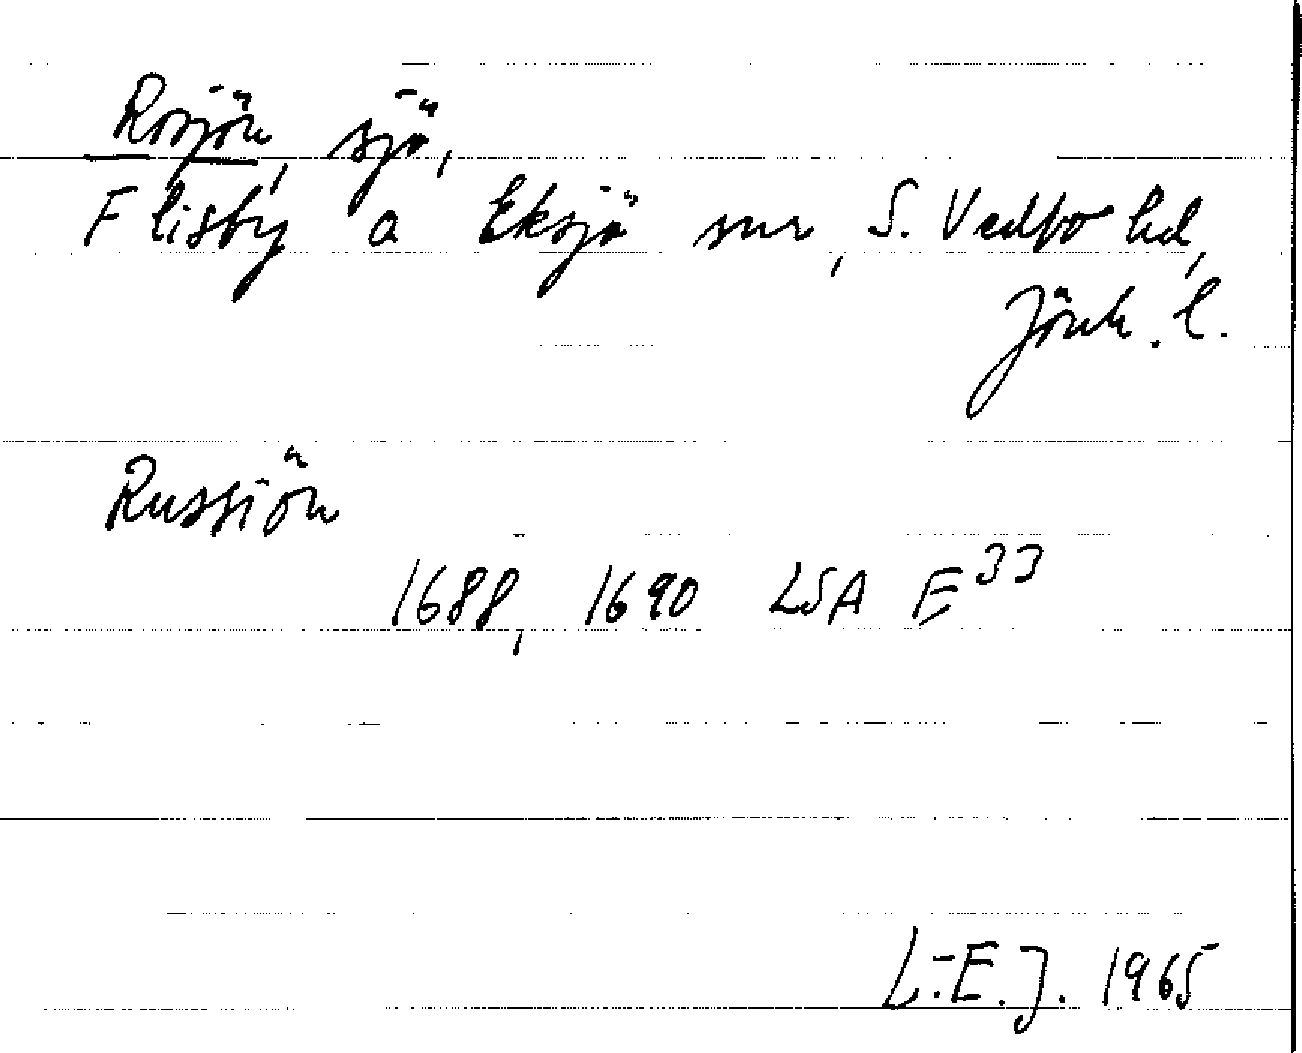 Rosjön, sjö,
Flisby o Eksjö snr, S. Vedbo hd,
Jönk. l.
Russiön
1688, 1690 LSA E33
L.-E. J. 1965